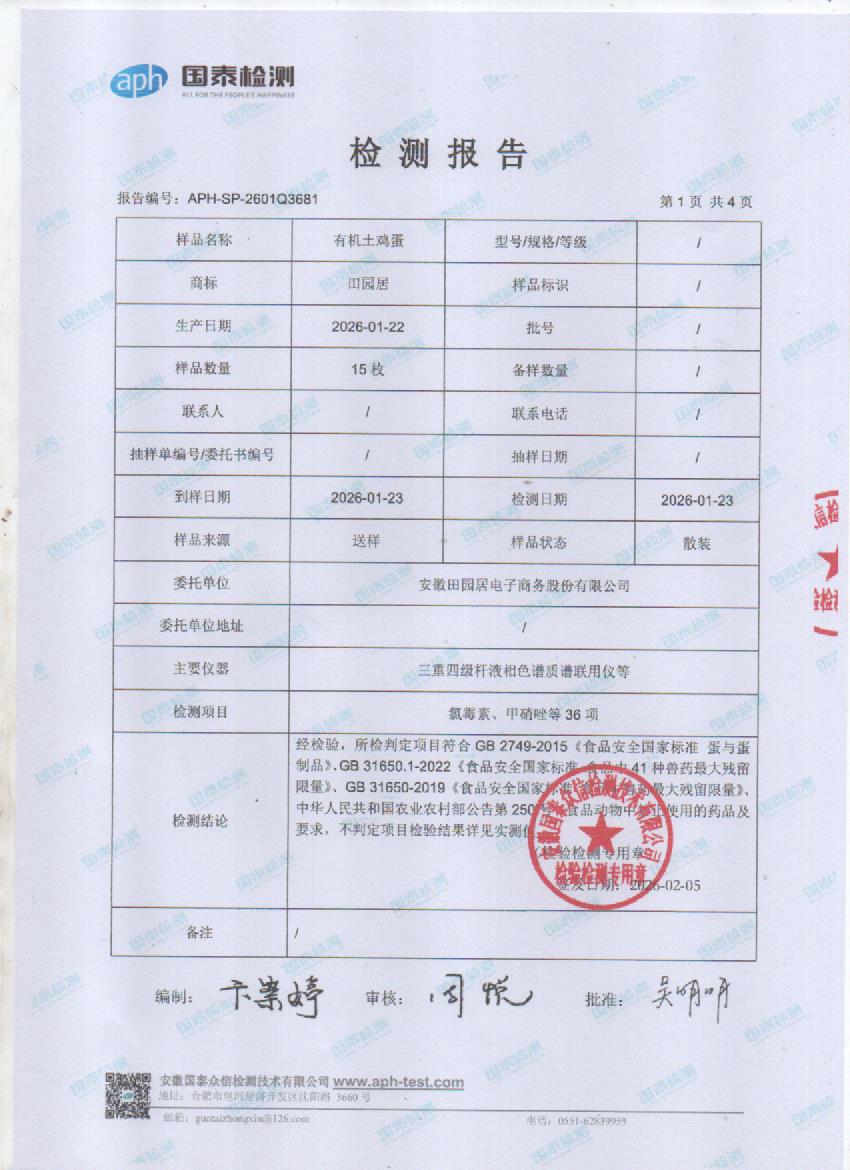 aph 国泰检测
ALL FOR THE PEOPLE'S HAPPINESS
检测报告
报告编号：APH-SP-2601Q3681 第 1 页 共 4 页
样品名称 有机土鸡蛋 型号/规格/等级 /
商标 田园居 样品标识 /
生产日期 2026-01-22 批号 /
样品数量 15 枚 备样数量 /
联系人 / 联系电话 /
抽样单编号/委托书编号 / 抽样日期 /
到样日期 2026-01-23 检测日期 2026-01-23
样品来源 送样 样品状态 散装
委托单位 安徽田园居电子商务股份有限公司
委托单位地址 /
主要仪器 三重四级杆液相色谱质谱联用仪等
检测项目 氯霉素、甲硝唑等 36 项
检测结论
经检验，所检判定项目符合 GB 2749-2015《食品安全国家标准 蛋与蛋
制品》、GB 31650.1-2022《食品安全国家标准 食品中 41 种兽药最大残留
限量》、GB 31650-2019《食品安全国家标准 兽药最大残留限量》、
中华人民共和国农业农村部公告第 250 食品动物中 止使用的药品及
要求，不判定项目检验结果详见实测值
（检验检测专用章）
签发日期：2026-02-05
安徽国泰众信检测技术有限公司
检验检测专用章
备注 /
编制： 审核：周悦 批准：吴明明
安徽国泰众信检测技术有限公司 www.aph-test.com
地址：合肥市包河经济开发区沈阳路 3660 号
邮箱：guotaizhongxin@126.com 电话：0551-62839959